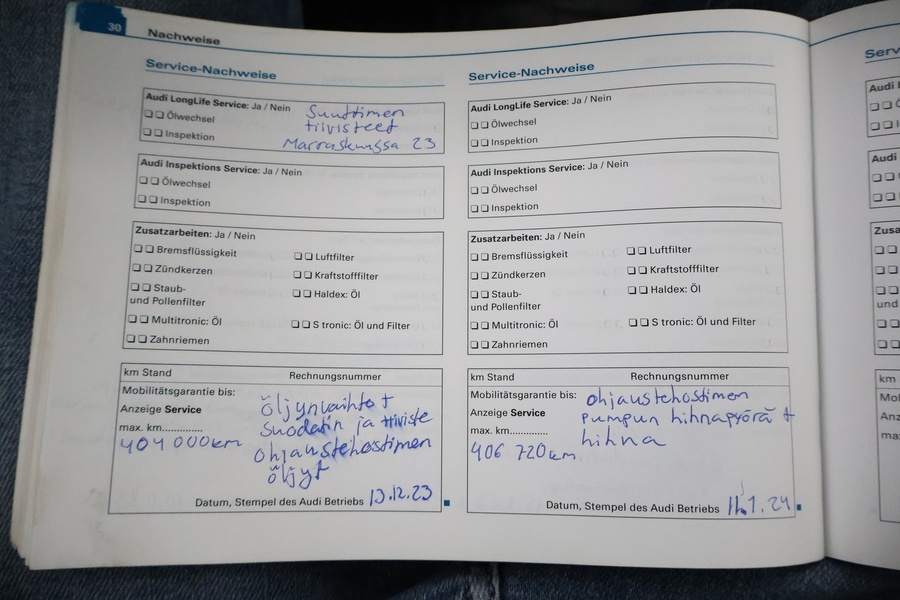 30
Nachweise
Service-Nachweise
Audi LongLife Service: Ja / Nein
Suuttimen
❑ ❑ Ölwechsel
tiivisteet
❑ ❑ Inspektion
Marraskuussa 23
Audi Inspektions Service: Ja / Nein
❑ ❑ Ölwechsel
❑ ❑ Inspektion
Zusatzarbeiten: Ja / Nein
❑ ❑ Bremsflüssigkeit ❑ ❑ Luftfilter
❑ ❑ Zündkerzen ❑ ❑ Kraftstofffilter
❑ ❑ Staub- ❑ ❑ Haldex: Öl
und Pollenfilter
❑ ❑ Multitronic: Öl ❑ ❑ S tronic: Öl und Filter
❑ ❑ Zahnriemen
km Stand Rechnungsnummer
Mobilitätsgarantie bis:
Anzeige Service
max. km..............
404 000km
öljynvaihto +
suodatin ja tiiviste
ohjaustehostimen
öljyt
Datum, Stempel des Audi Betriebs 13.12.23
Service-Nachweise
Audi LongLife Service: Ja / Nein
❑ ❑ Ölwechsel
❑ ❑ Inspektion
Audi Inspektions Service: Ja / Nein
❑ ❑ Ölwechsel
❑ ❑ Inspektion
Zusatzarbeiten: Ja / Nein
❑ ❑ Bremsflüssigkeit ❑ ❑ Luftfilter
❑ ❑ Zündkerzen ❑ ❑ Kraftstofffilter
❑ ❑ Staub- ❑ ❑ Haldex: Öl
und Pollenfilter
❑ ❑ Multitronic: Öl ❑ ❑ S tronic: Öl und Filter
❑ ❑ Zahnriemen
km Stand Rechnungsnummer
Mobilitätsgarantie bis:
Anzeige Service
max. km..............
406 720km
ohjaustehostimen
pumpun hihnapyörä +
hihna
Datum, Stempel des Audi Betriebs 11.1.24
Serv
Audi
Audi
Zusa
und
km
Mo
An
ma